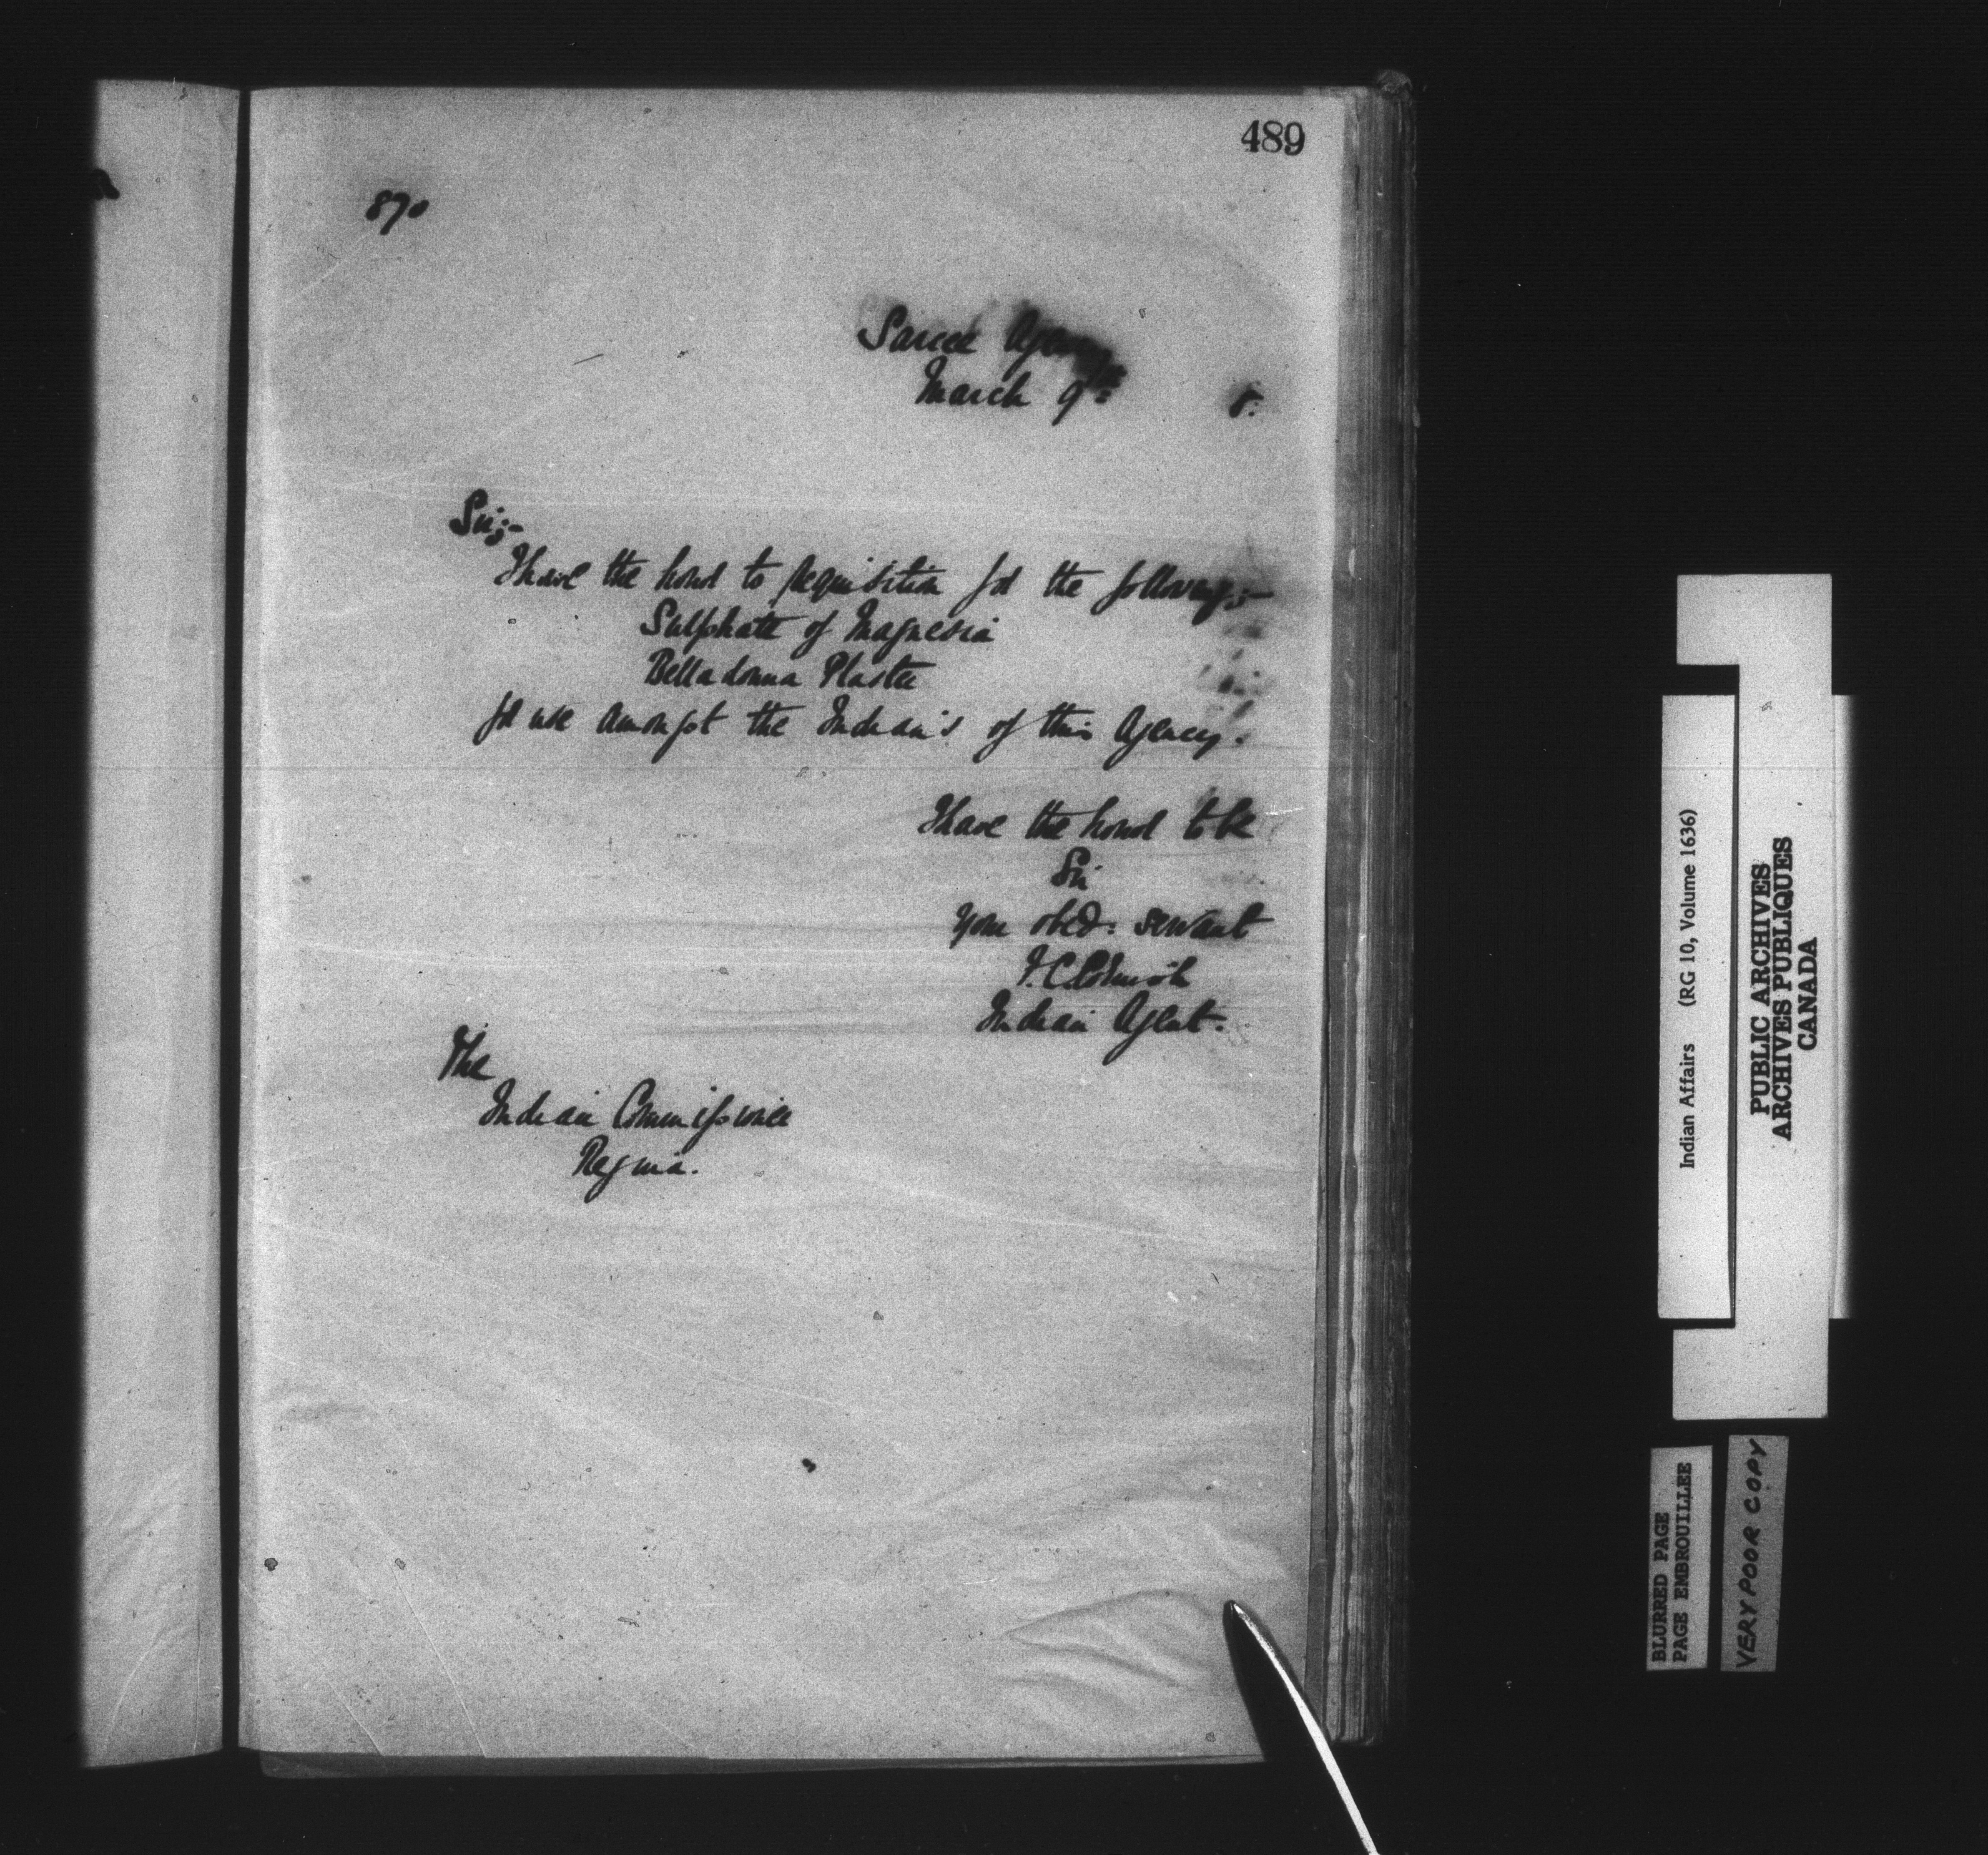 489
870
Sarcee Agency
March 9th 8.
Sir;-
I have the honor to requisition for the following;-
Sulphate of Magnesia
Belladonna Plaster
for use amongst the Indian's of this Agency.
I have the honor to be
Sir
your obed: servant
Indian Agent.
The
Indian Commissioner
Regina.
Indian Affairs (RG 10, Volume 1636)
PUBLIC ARCHIVES
ARCHIVES PUBLIQUES
CANADA
BLURRED PAGE
PAGE EMBROUILLEE
VERY POOR COPY